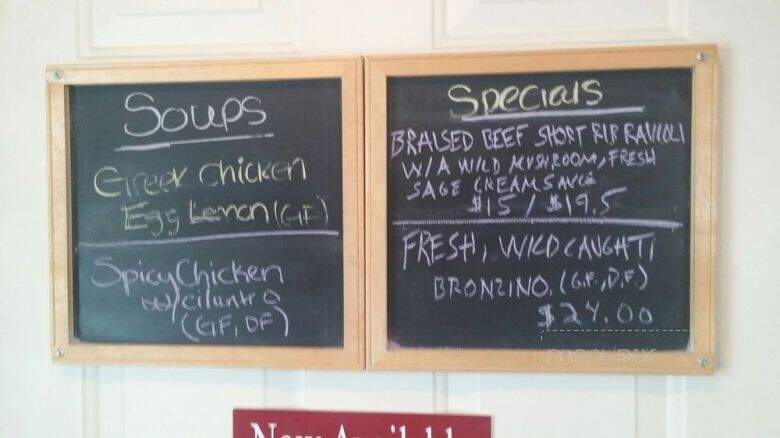 Soups
Greek Chicken
Egg Lemon (GF)
Spicy Chicken
w/ cilantro
(GF, DF)
Specials
BRAISED BEEF SHORT RIB RAVIOLI
W/A WILD MUSHROOM, FRESH
SAGE CREAM SAUCE
$15 / $19.5
FRESH, WILD CAUGHT
BRONZINO. (G.F., D.F.)
$24.00
menupix
Now Available